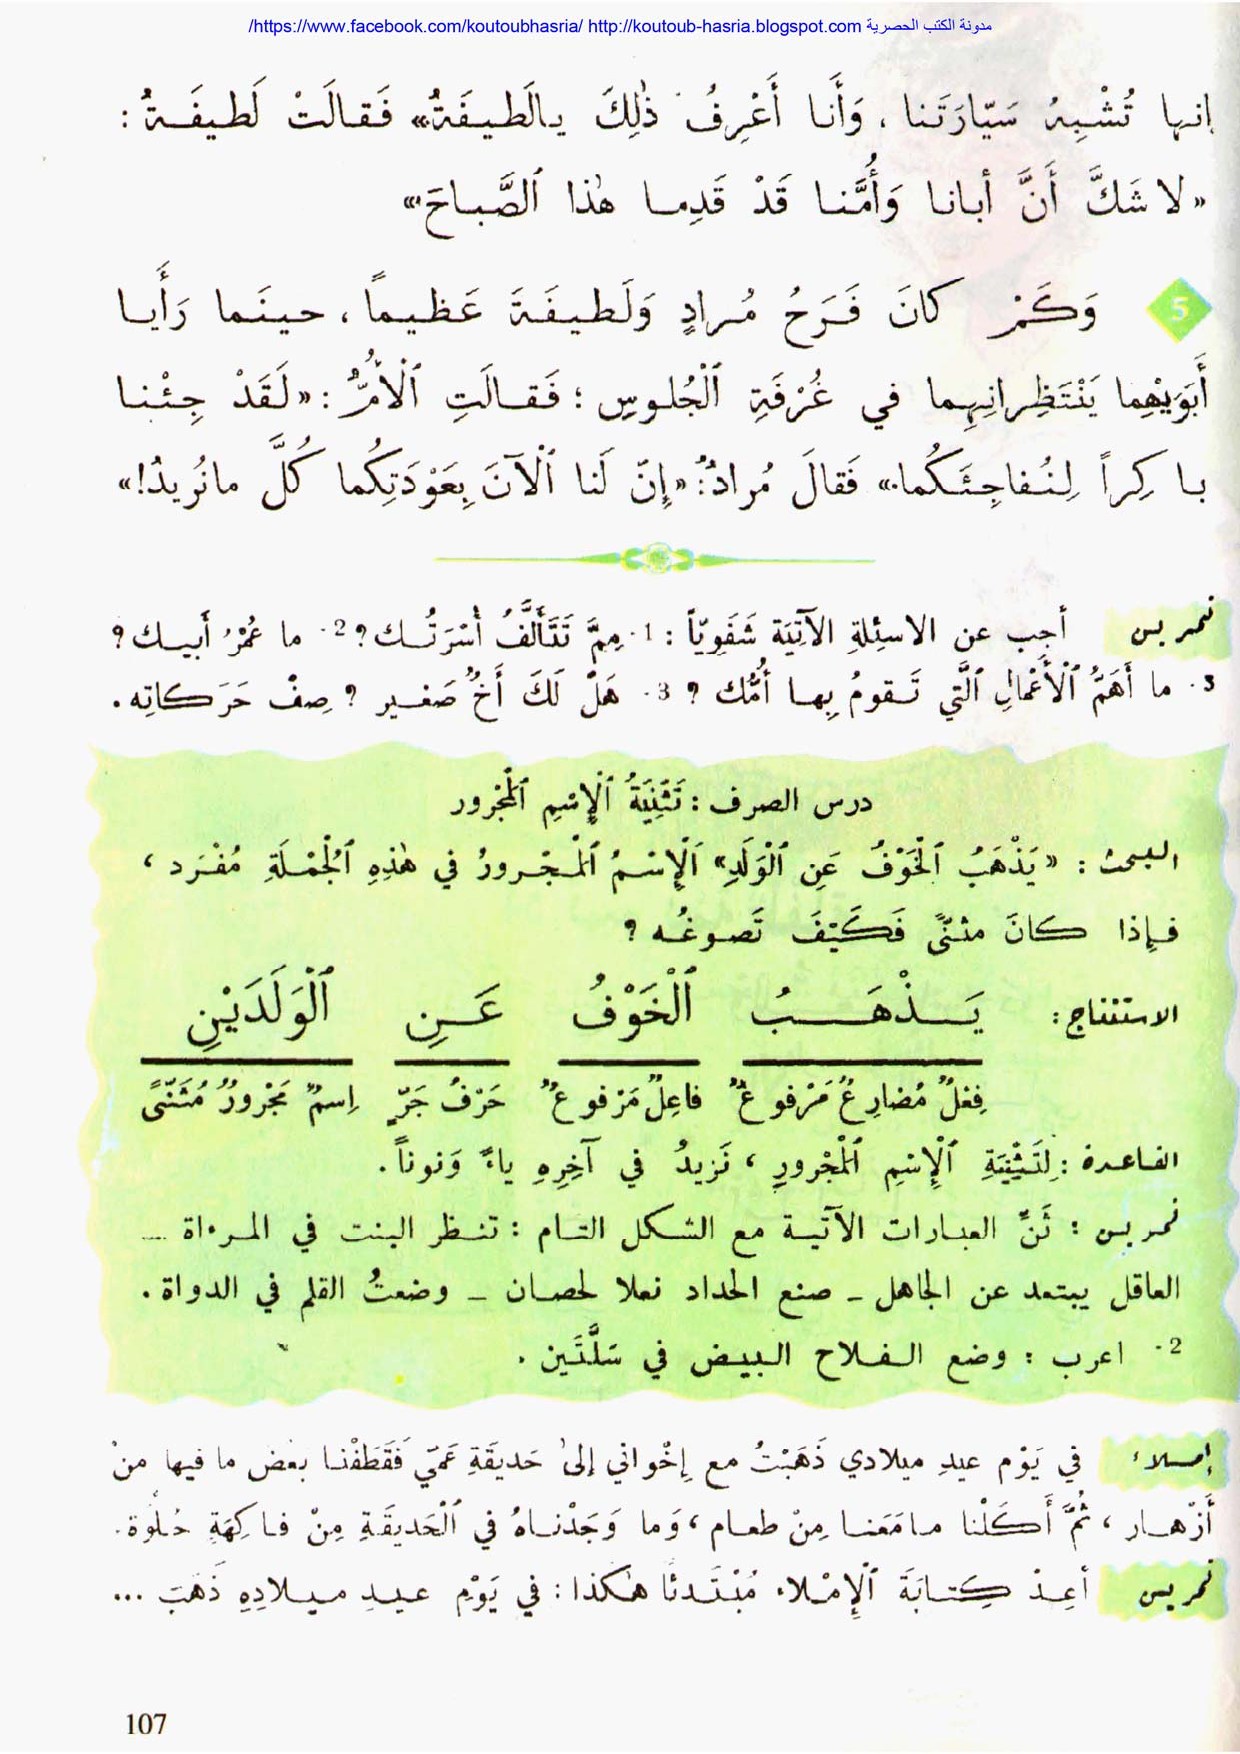 https://www.facebook.com/koutoubhasria/ http://koutoub-hasria.blogspot.com مدونة الكتب الحصرية/
إنها تُشْبِهُ سَيّارَتَنا، وَأَنا أَعْرِفُ ذٰلِكَ يالَطيفَةُ» فَقالَتْ لَطيفَةُ :
«لا شَكَّ أَنَّ أبانا وَأُمَّنا قَدْ قَدِما هٰذا ٱلصَّباحَ»
5 وَكَمْ كانَ فَرَحُ مُرادٍ وَلَطيفَةَ عَظيماً، حينَما رَأَيا
أَبَوَيْهِما يَنْتَظِرانِهِما في غُرْفَةِ ٱلْجُلوسِ؛ فَقالَتِ ٱلْأُمُّ: «لَقَدْ جِئْنا
باكِراً لِنُفاجِئَكُما.» فَقالَ مُرادٌ: «إنّ لَنا ٱلْآنَ بِعَوْدَتِكُما كُلَّ مانُريدُ!»
تمريس أجب عن الاسئِلةِ الآتِيَة شَفَوِيّاً : 1. مِمَّ تَتَأَلَّفُ أُسْرَتُك؟ 2. ما عُمْرُ أَبيك؟
3. ما أَهَمُّ ٱلْأَعْمالِ ٱلَّتي تَقومُ بِها أُمُّك ؟ 3. هَلْ لَكَ أَخٌ صَغير ؟ صِفْ حَرَكاتِه.
درس الصرف : تَثْنِيَةُ ٱلْإِسْمِ ٱلْمَجْرور
البحث : «يَذْهَبُ ٱلْخَوْفُ عَنِ ٱلْوَلَدِ» ٱلْإِسْمُ ٱلْمَجْرورُ في هٰذِهِ ٱلْجُمْلَةِ مُفْرَد ،
فإذا كانَ مثنّىً فَكَيْفَ تَصوغُه ؟
الاستنتاج: يَذْهَبُ ٱلْخَوْفُ عَنِ ٱلْوَلَدَيْنِ
فِعْلٌ مُضارِعٌ مَرْفوعٌ فاعِلٌ مَرْفوعٌ حَرْفُ جَرٍّ اِسمٌ مَجْرورٌ مُثَنّىً
القاعدة : لِتَثْنِيَةِ ٱلْإِسْمِ ٱلْمَجْرورِ ، نَزيدُ في آخِرِهِ ياءً وَنوناً.
تمريس : ثَنِّ العبارات الآتية مع الشكل التام : تنظر البنت في المرءاة _
العاقل يبتعد عن الجاهل _ صنع الحداد نعلا لحصان _ وضعتُ القلم في الدواة.
2. اعرب : وضع الفلاح البيض في سَلَّتَين .
إملاء في يَوْم عيدِ ميلادي ذَهَبْتُ مع إخْواني إلىٰ حَديقَةِ عَمّي فَقَطَفْنا بعْض ما فيها منْ
أزْهار ، ثُمَّ أَكَلْنا مامَعَنا مِنْ طعام ، وَما وَجَدْناهُ في ٱلْحَديقَةِ مِنْ فاكِهَةٍ حُلْوَة.
تمريس أعِدْ كِتابَةَ ٱلْإِمْلاء مُبْتَدئا هٰكذا : في يَوْمِ عيدِ ميلادِهِ ذَهَبَ ...
107